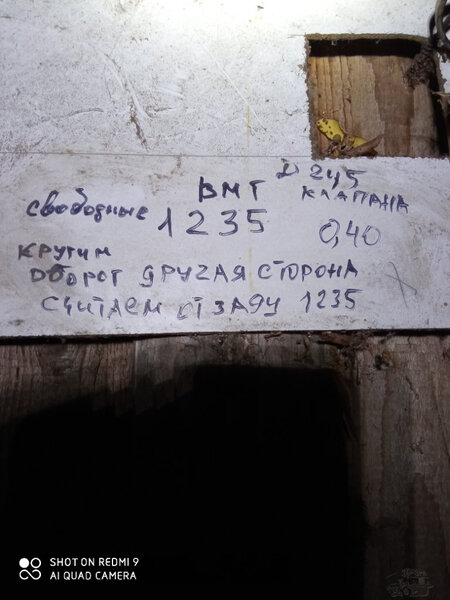 ВМТ Д 245
свободные 1235 КЛАПАНА
0,40
КРУТИМ
ОБОРОТ ДРУГАЯ СТОРОНА
СЧИТАЕМ ОТ ЗАДУ 1235
SHOT ON REDMI 9
AI QUAD CAMERA